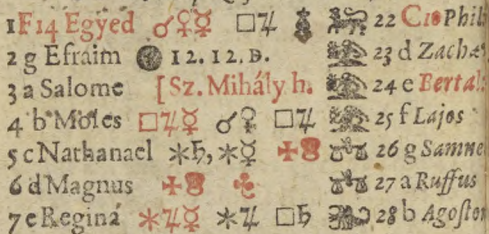 1 F 14 Egyed ☌♀☿ □♃ 22 C 10 Phil
2 g Efraim 12. 12. D. 23 d Zachæ
3 a Salome [Sz. Mihály h. 24 e Bertal
4 b Moſes □♃☿ ☌♀ □♃ 25 f Lajos
5 c Nathanael ✶♄, ✶☿ 26 g Samue
6 d Magnus 27 a Ruffus
7 e Reginá ✶♃☿ ✶♃ □♄ 28 b Agoſton